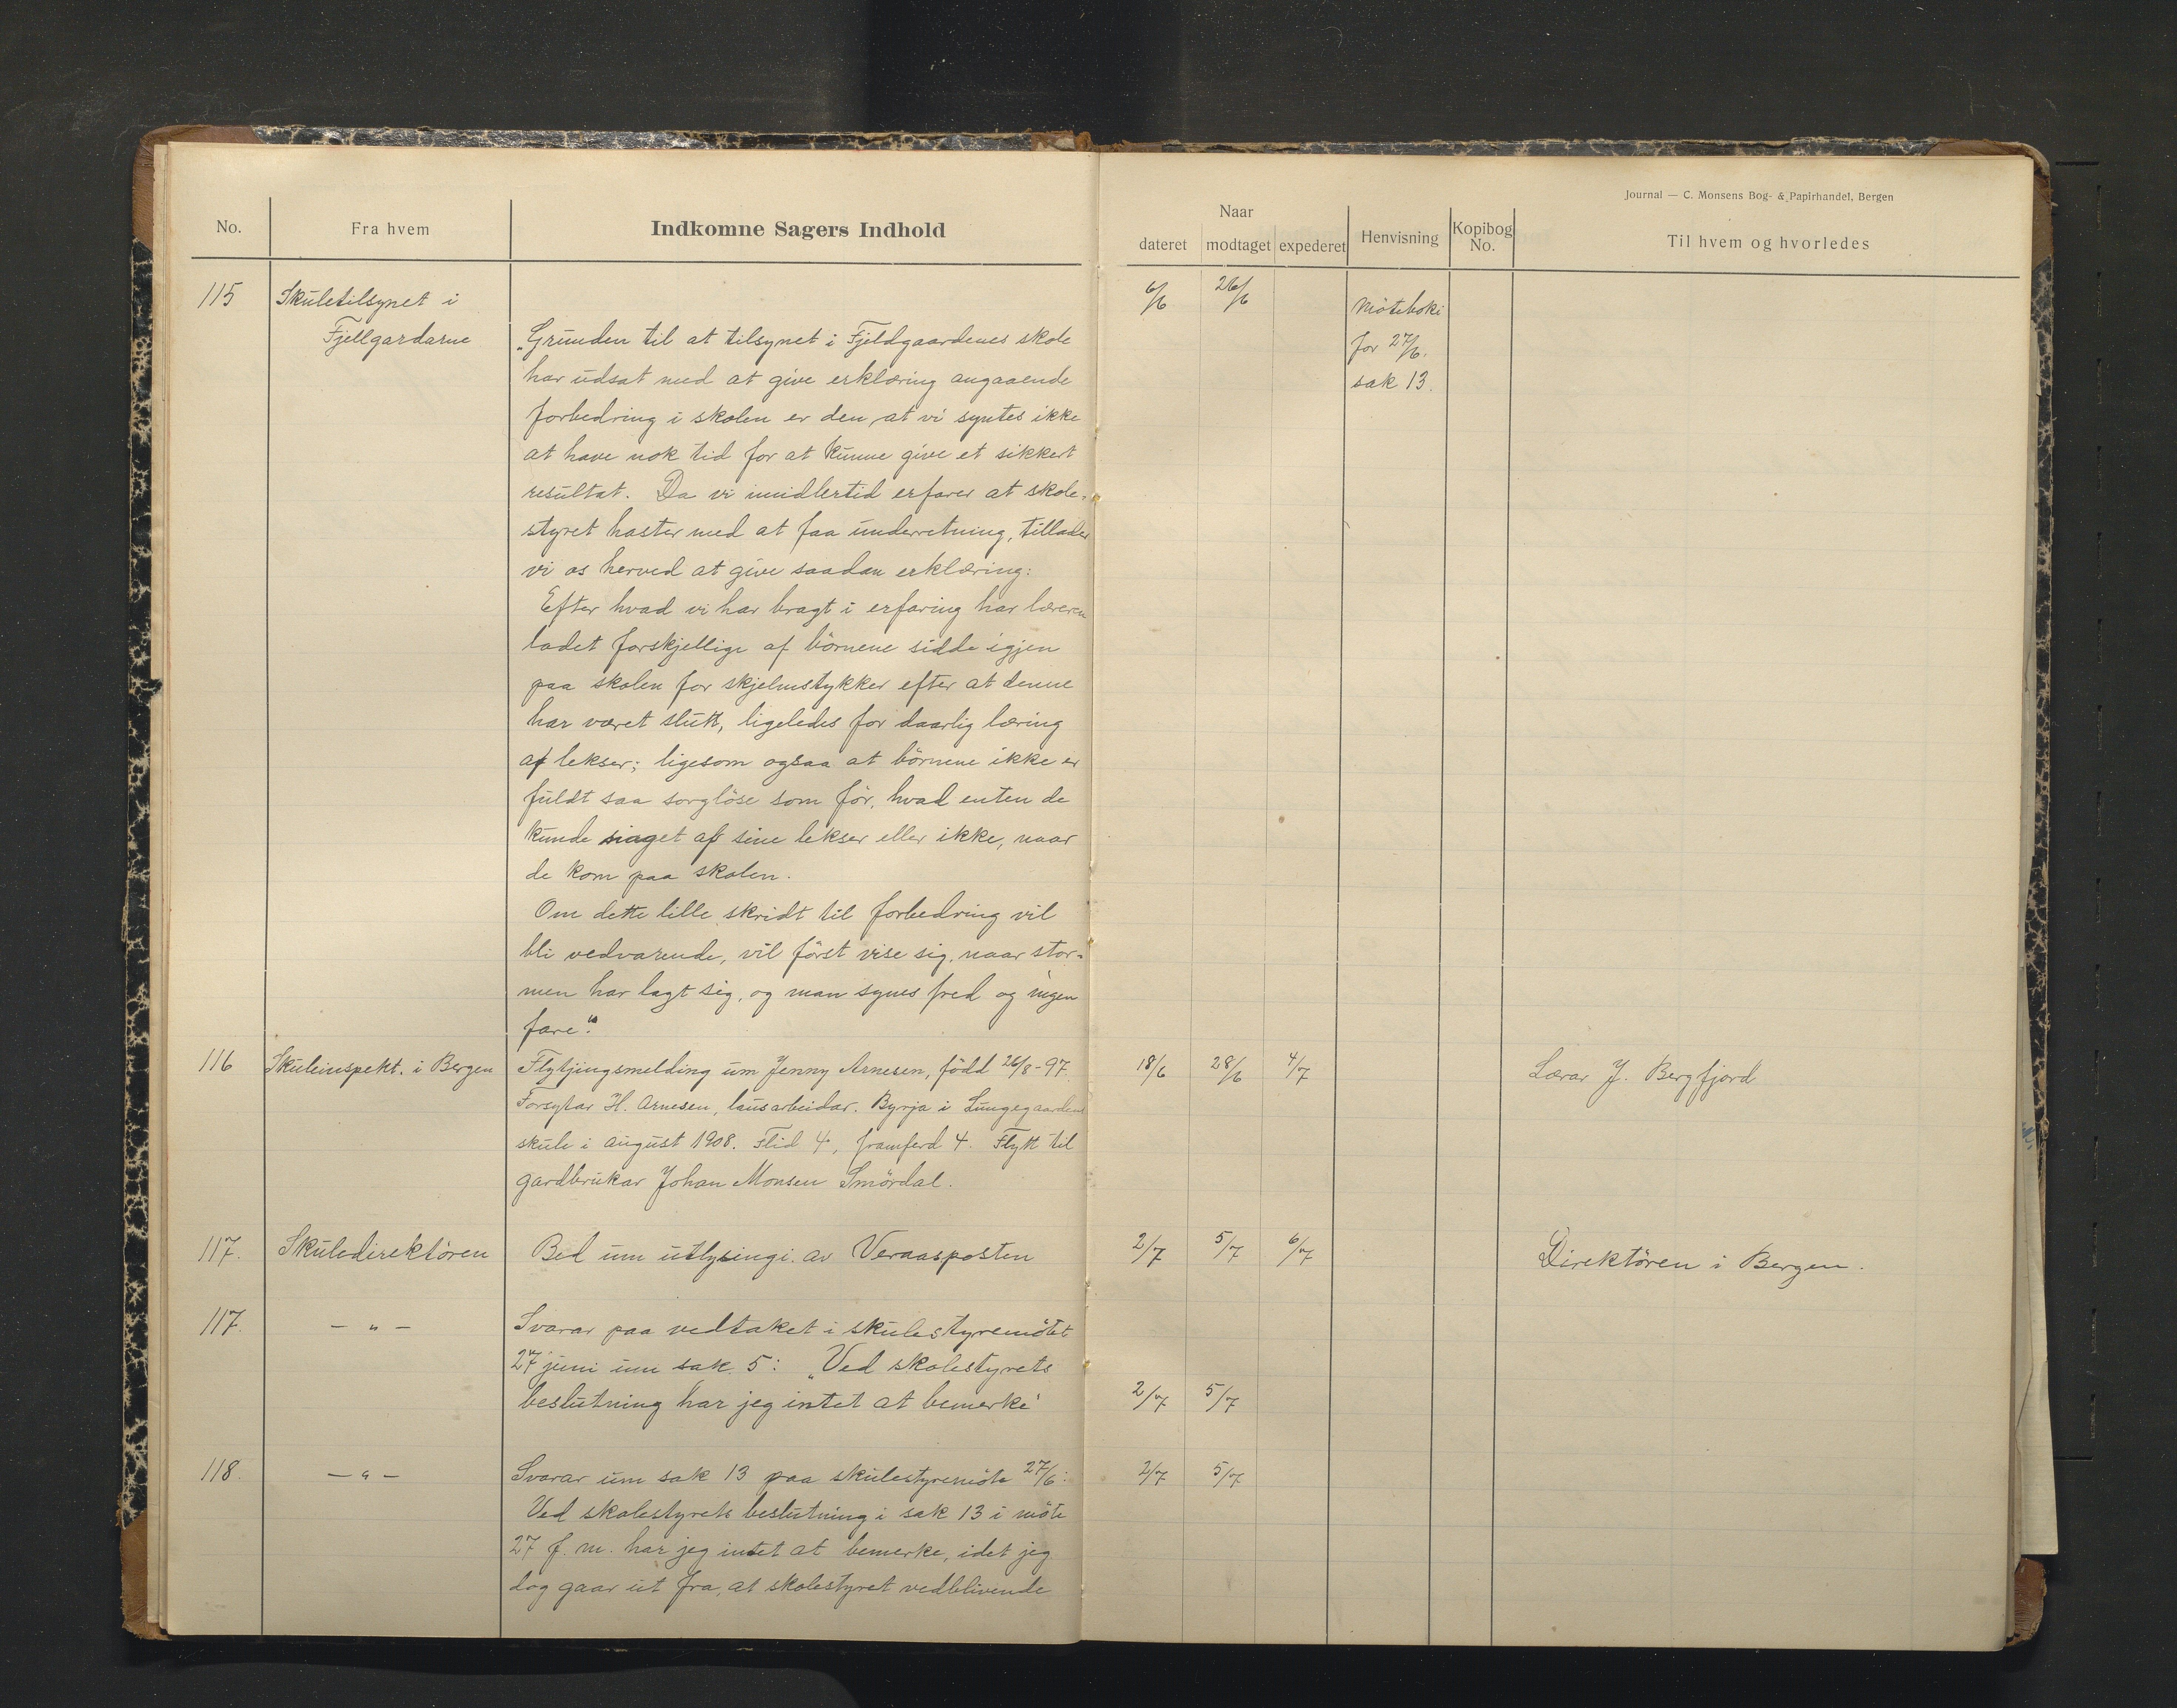 Journal — C. Monsens Bog- & Papirhandel, Bergen
No. Fra hvem Indkomne Sagers Indhold
Naar
dateret modtaget expederet Henvisning Kopibog No. Til hvem og hvorledes
115 Skuletilsynet i 6/6 26/6 Møteboki
Fjellgardarne „Grunden til at tilsynet i Fjeldgaardenes skole for 27/6.
har udsat med at give erklæring angaaende sak 13.
forbedring i skolen er den, at vi syntes ikke
at have nok tid for at kunne give et sikkert
resultat. Da vi imidlertid erfarer at skole-
styret haster med at faa underretning, tillader
vi os herved at give saadan erklæring:
Efter hvad vi har bragt i erfaring har læreren
ladet forskjellige af börnene sidde igjen
paa skolen for skjelmstykker efter at denne
har været slutt, ligeledes for daarlig læring
af lekser; ligesom ogsaa at börnene ikke er
fuldt saa sorglöse som för, hvad enten de
kunde noget af sine lekser eller ikke, naar
de kom paa skolen.
Om dette lille skridt til forbedring vil
bli vedvarende, vil först vise sig, naar stor-
men har lagt sig, og man synes fred og ingen
fare."
116 Skuleinspekt. i Bergen Flytjingsmelding um Jenny Arnesen, född 26/8-97. 18/6 28/6 4/7 Lærar J. Bergfjord
Forsytar H. Arnesen, lausarbeidar. Byrja i Lungegaardens
skule i august 1908. Flid 4, framferd 4. Flytt til
gardbrukar Johan Monsen Smördal.
117. Skuledirektören Bed um utlysingi av Veraasposten 2/7 5/7 6/7 Direktören i Bergen.
117. — „ — Svarar paa vedtaket i skulestyremötet
27 juni um sak 5: „Ved skolestyrets
beslutning har jeg intet at bemerke" 2/7 5/7
118. — „ — Svarar um sak 13 paa skulestyremöte 27/6: 2/7 5/7
Ved skolestyrets beslutning i sak 13 i möte
27 f. m. har jeg intet at bemerke, idet jeg
dog gaar ut fra, at skolestyret vedblivende